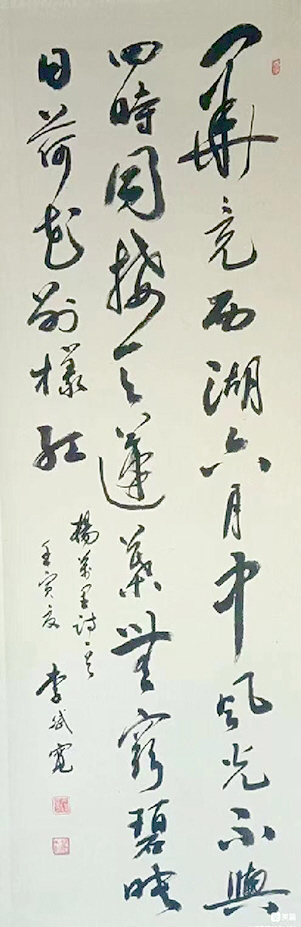 畢竟西湖六月中風光不與
四時同接天蓮葉無窮碧映
日荷花別樣紅
楊萬里詩一首
壬寅夏 李